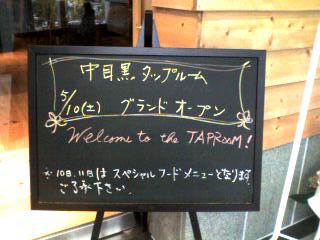 中目黒 タップルーム
5/10(土) グランド オープン
Welcome to the TAPROOM!
※10日、11日は スペシャル フード メニューとなります
ご了承下さい.